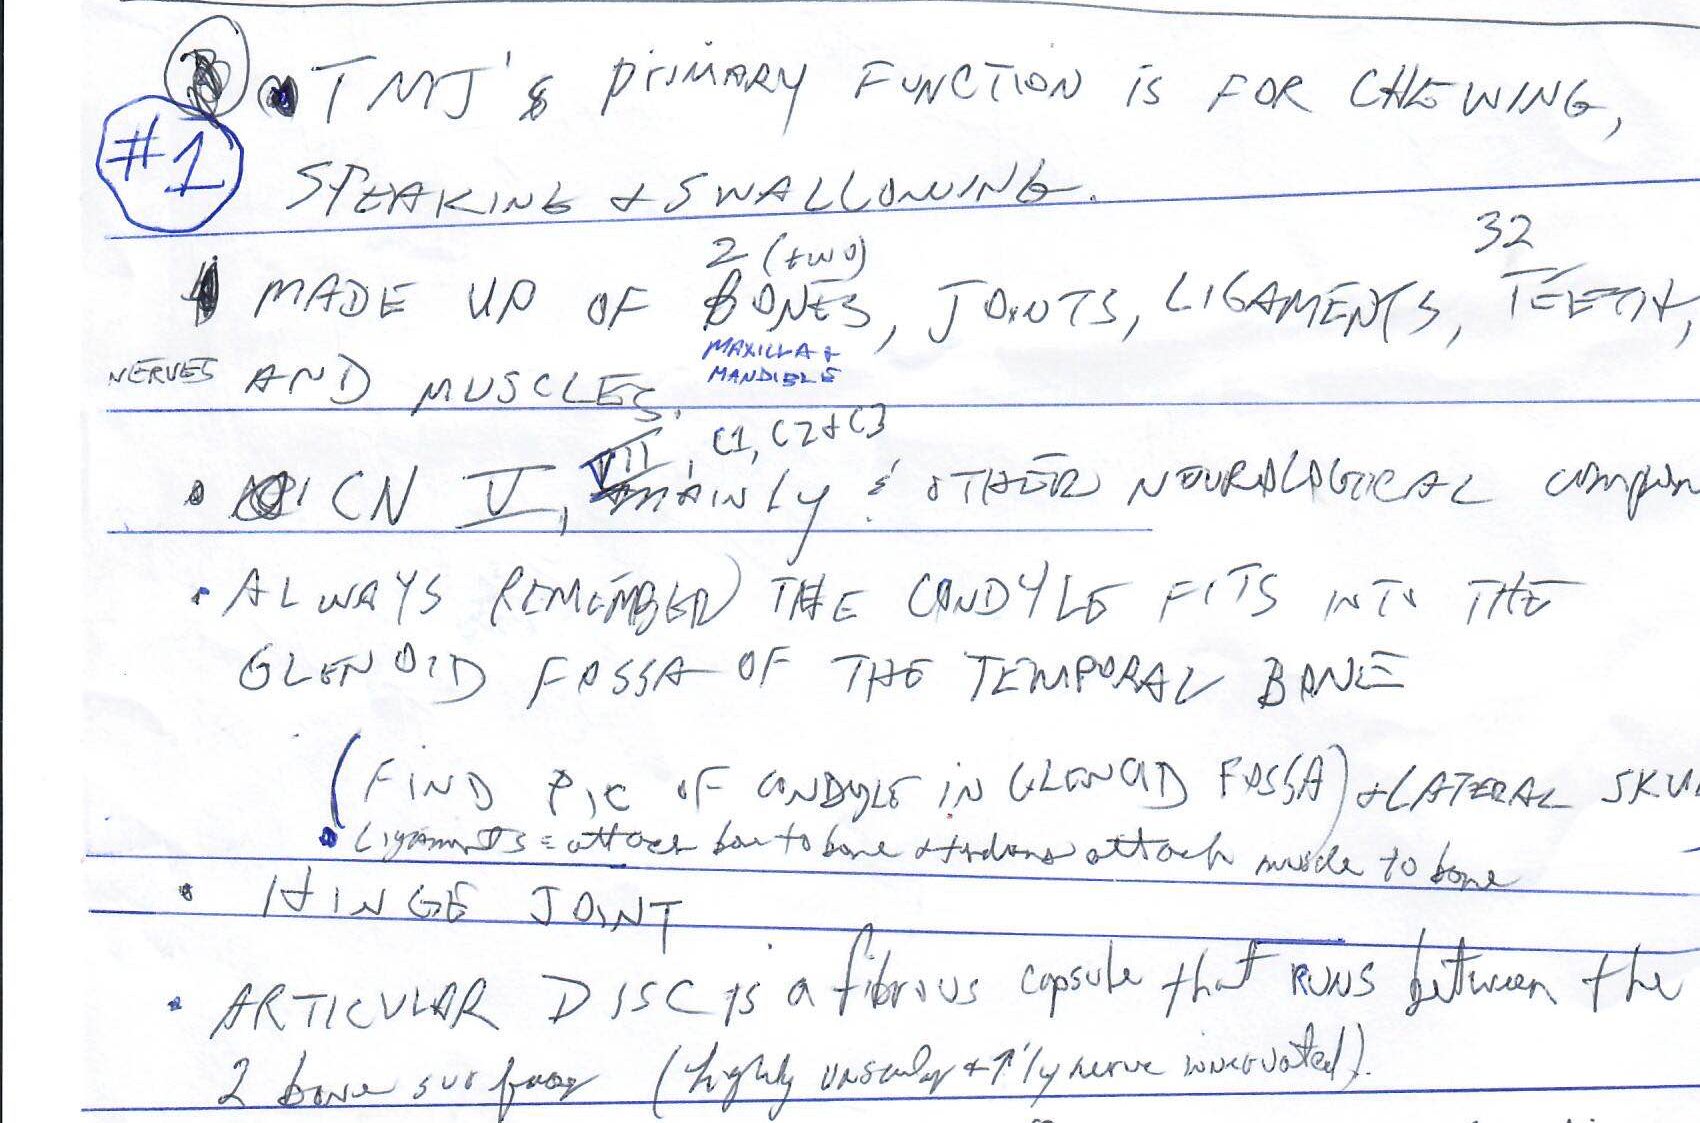 • TMJ's primary FUNCTION is FOR CHEWING,
#1
SPEAKING & SWALLOWING.
2 (two) 32
MADE UP OF BONES, JOINTS, LIGAMENTS, TEETH,
MAXILLA &
NERVES AND MUSCLES.
MANDIBLE
VII, C1, C2 & C3
• CN V, mainly & OTHER NEUROLOGICAL
• ALWAYS REMEMBER THE CONDYLE FITS INTO THE
GLENOID FOSSA OF THE TEMPORAL BONE
(FIND PIC OF CONDYLE IN GLENOID FOSSA) & LATERAL
• Ligaments = attach bone to bone & tendons attach muscle to bone
• HINGE JOINT
• ARTICULAR DISC is a fibrous capsule that RUNS between the
2 bone surfaces (highly vascular & ↑'ly nerve innervated).